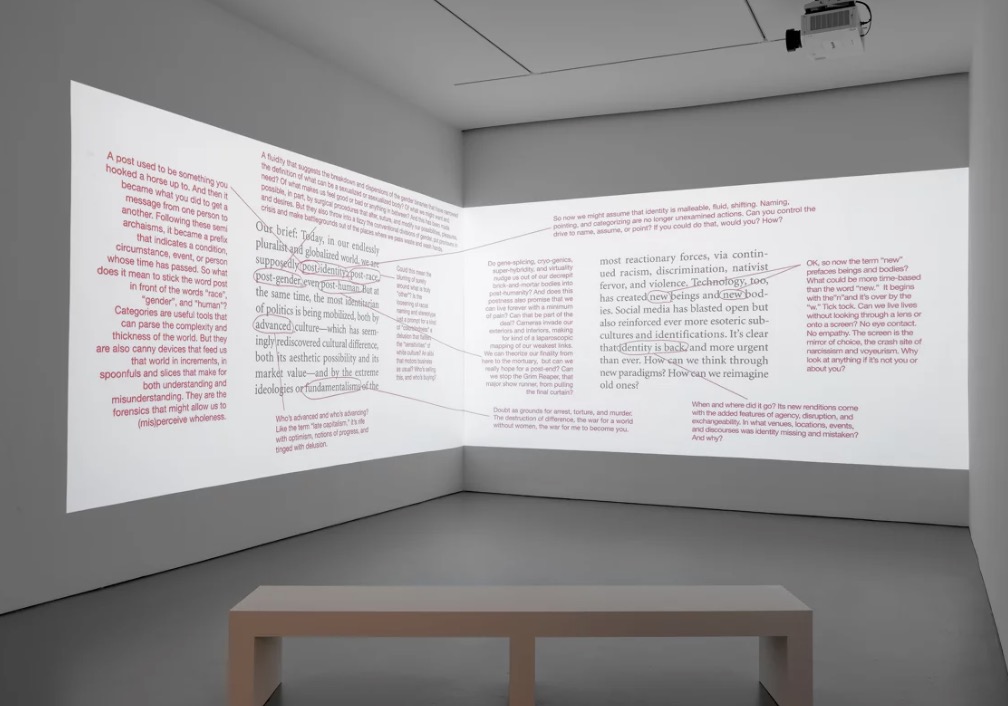 A post used to be something you
hooked a horse up to. And then it
became what you did to get a
message from one person to
another. Following these semi
archaisms, it became a prefix
that indicates a condition,
circumstance, event, or person
whose time has passed. So what
does it mean to stick the word post
in front of the words "race",
"gender", and "human"?
Categories are useful tools that
can parse the complexity and
thickness of the world. But they
are also canny devices that feed us
that world in increments, in
spoonfuls and slices that make for
both understanding and
misunderstanding. They are the
forensics that might allow us to
(mis)perceive wholeness.
A fluidity that suggests the breakdown and dispersions of the gender
the definition of what can be a sexualized or asexualized body? Of what we might want and
need? Of what makes us feel good or bad or anything in between? And this has been made
possible, in part, by surgical procedures that alter, suture, and modify our possibilities, pleasures,
and desires. But they also throw into a tizzy the conventional divisions of gender,
crisis and make battlegrounds out of the places where we pass waste and wash hands.
Our brief: Today, in our endlessly
pluralist and globalized world, we are
supposedly post-identity, post-race,
post-gender, even post-human. But at
the same time, the most identitarian
of politics is being mobilized, both by
advanced culture—which has seem-
ingly rediscovered cultural difference,
both its aesthetic possibility and its
market value—and by the extreme
ideologies or fundamentalisms of the
Could this mean the
blurring of clarity
around what is truly
"other"? Is the
loosening of racial
naming and stereotypes
just a
of "colorblindness" a
delusion that
the "sensitivities" of
white culture? As
that motors business
as usual? Who's selling
this, and who's buying?
Who's advanced and who's advancing?
Like the term "late capitalism." It's rife
with optimism, notions of progress, and
tinged with delusion.
So now we might assume that identity is malleable, fluid, shifting. Naming,
pointing, and categorizing are no longer unexamined actions. Can you control the
drive to name, assume, or point? If you could do that, would you? How?
Do gene-splicing, cryo-genics,
super-hybridity, and virtuality
nudge us out of our decrepit
brick-and-mortar bodies into
post-humanity? And does this
postness also promise that we
can live forever with a minimum
of pain? Can that be part of the
deal? Cameras invade our
exteriors and interiors, making
for kind of a laparoscopic
mapping of our weakest links.
We can theorize our finality from
here to the mortuary, but can we
really hope for a post-end? Can
we stop the Grim Reaper, that
major show runner, from pulling
the final curtain?
most reactionary forces, via contin-
ued racism, discrimination, nativist
fervor, and violence. Technology, too,
has created new beings and new bod-
ies. Social media has blasted open but
also reinforced ever more esoteric sub-
cultures and identifications. It's clear
that identity is back, and more urgent
than ever. How can we think through
new paradigms? How can we reimagine
old ones?
OK, so now the term "new"
prefaces beings and bodies?
What could be more time-based
than the word "new." It begins
with the"n"and it's over by the
"w." Tick tock. Can we live lives
without looking through a lens or
onto a screen? No eye contact.
No empathy. The screen is the
mirror of choice, the crash site of
narcissism and voyeurism. Why
look at anything if it's not you or
about you?
Doubt as grounds for arrest, torture, and murder.
The destruction of difference, the war for a world
without women, the war for me to become you.
When and where did it go? Its new renditions come
with the added features of agency, disruption, and
exchangeability. In what venues, locations, events,
and discourses was identity missing and mistaken?
And why?